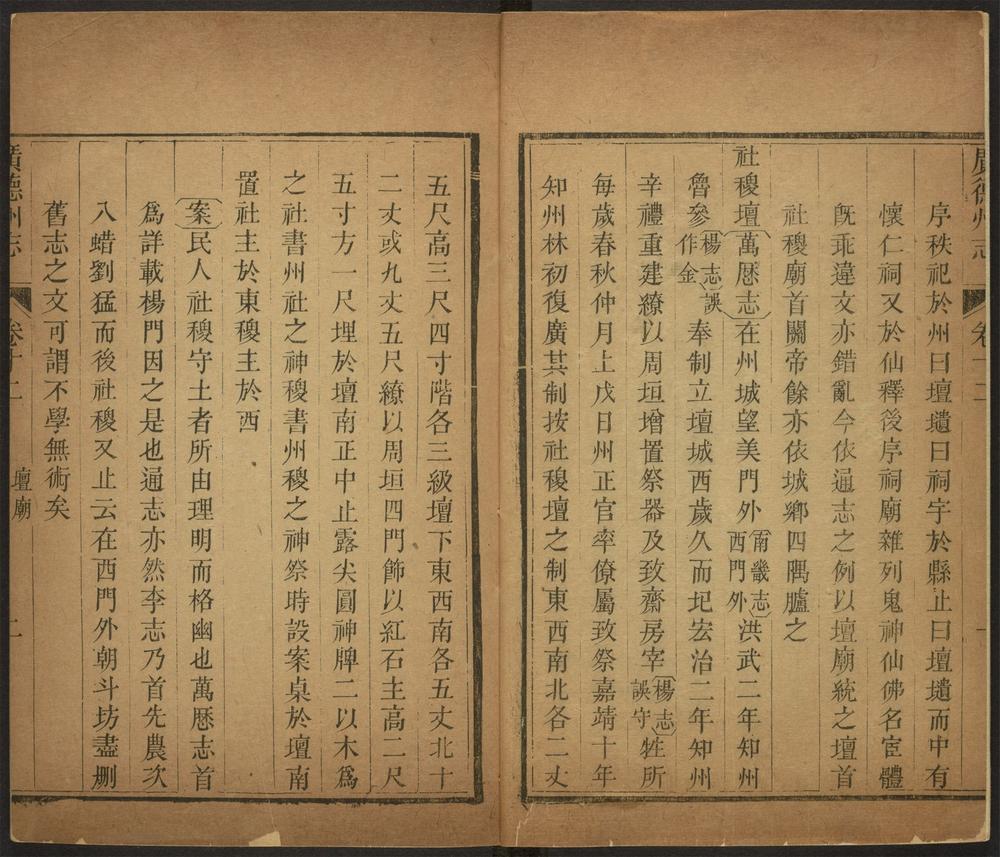 廣德州志
卷十二
一
序秩祀於州曰壇壝曰祠宇於縣止曰壇壝而中有
懷仁祠又於仙釋後序祠廟雜列鬼神仙佛名宦體
旣乖違文亦錯亂今依通志之例以壇廟統之壇首
社稷廟首關帝餘亦依城鄉四隅臚之
社稷壇萬厯志在州城望美門外南畿志西門外洪武二年知州
魯參楊志誤作金奉制立壇城西歲久而圮宏治二年知州
辛禮重建繚以周垣增置祭器及致齋房宰楊志誤守牲所
每歲春秋仲月上戊日州正官率僚屬致祭嘉靖十年
知州林初復廣其制按社稷壇之制東西南北各二丈
五尺高三尺四寸階各三級壇下東西南各五丈北十
二丈或九丈五尺繚以周垣四門飾以紅石主高二尺
五寸方一尺埋於壇南正中止露尖圓神牌二以木爲
之社書州社之神稷書州稷之神祭時設案桌於壇南
置社主於東稷主於西
案民人社稷守土者所由理明而格幽也萬厯志首
爲詳載楊門因之是也通志亦然李志乃首先農次
入蜡劉猛而後社稷又止云在西門外朝斗坊盡刪
舊志之文可謂不學無術矣
廣德州志
卷十二
壇廟
二